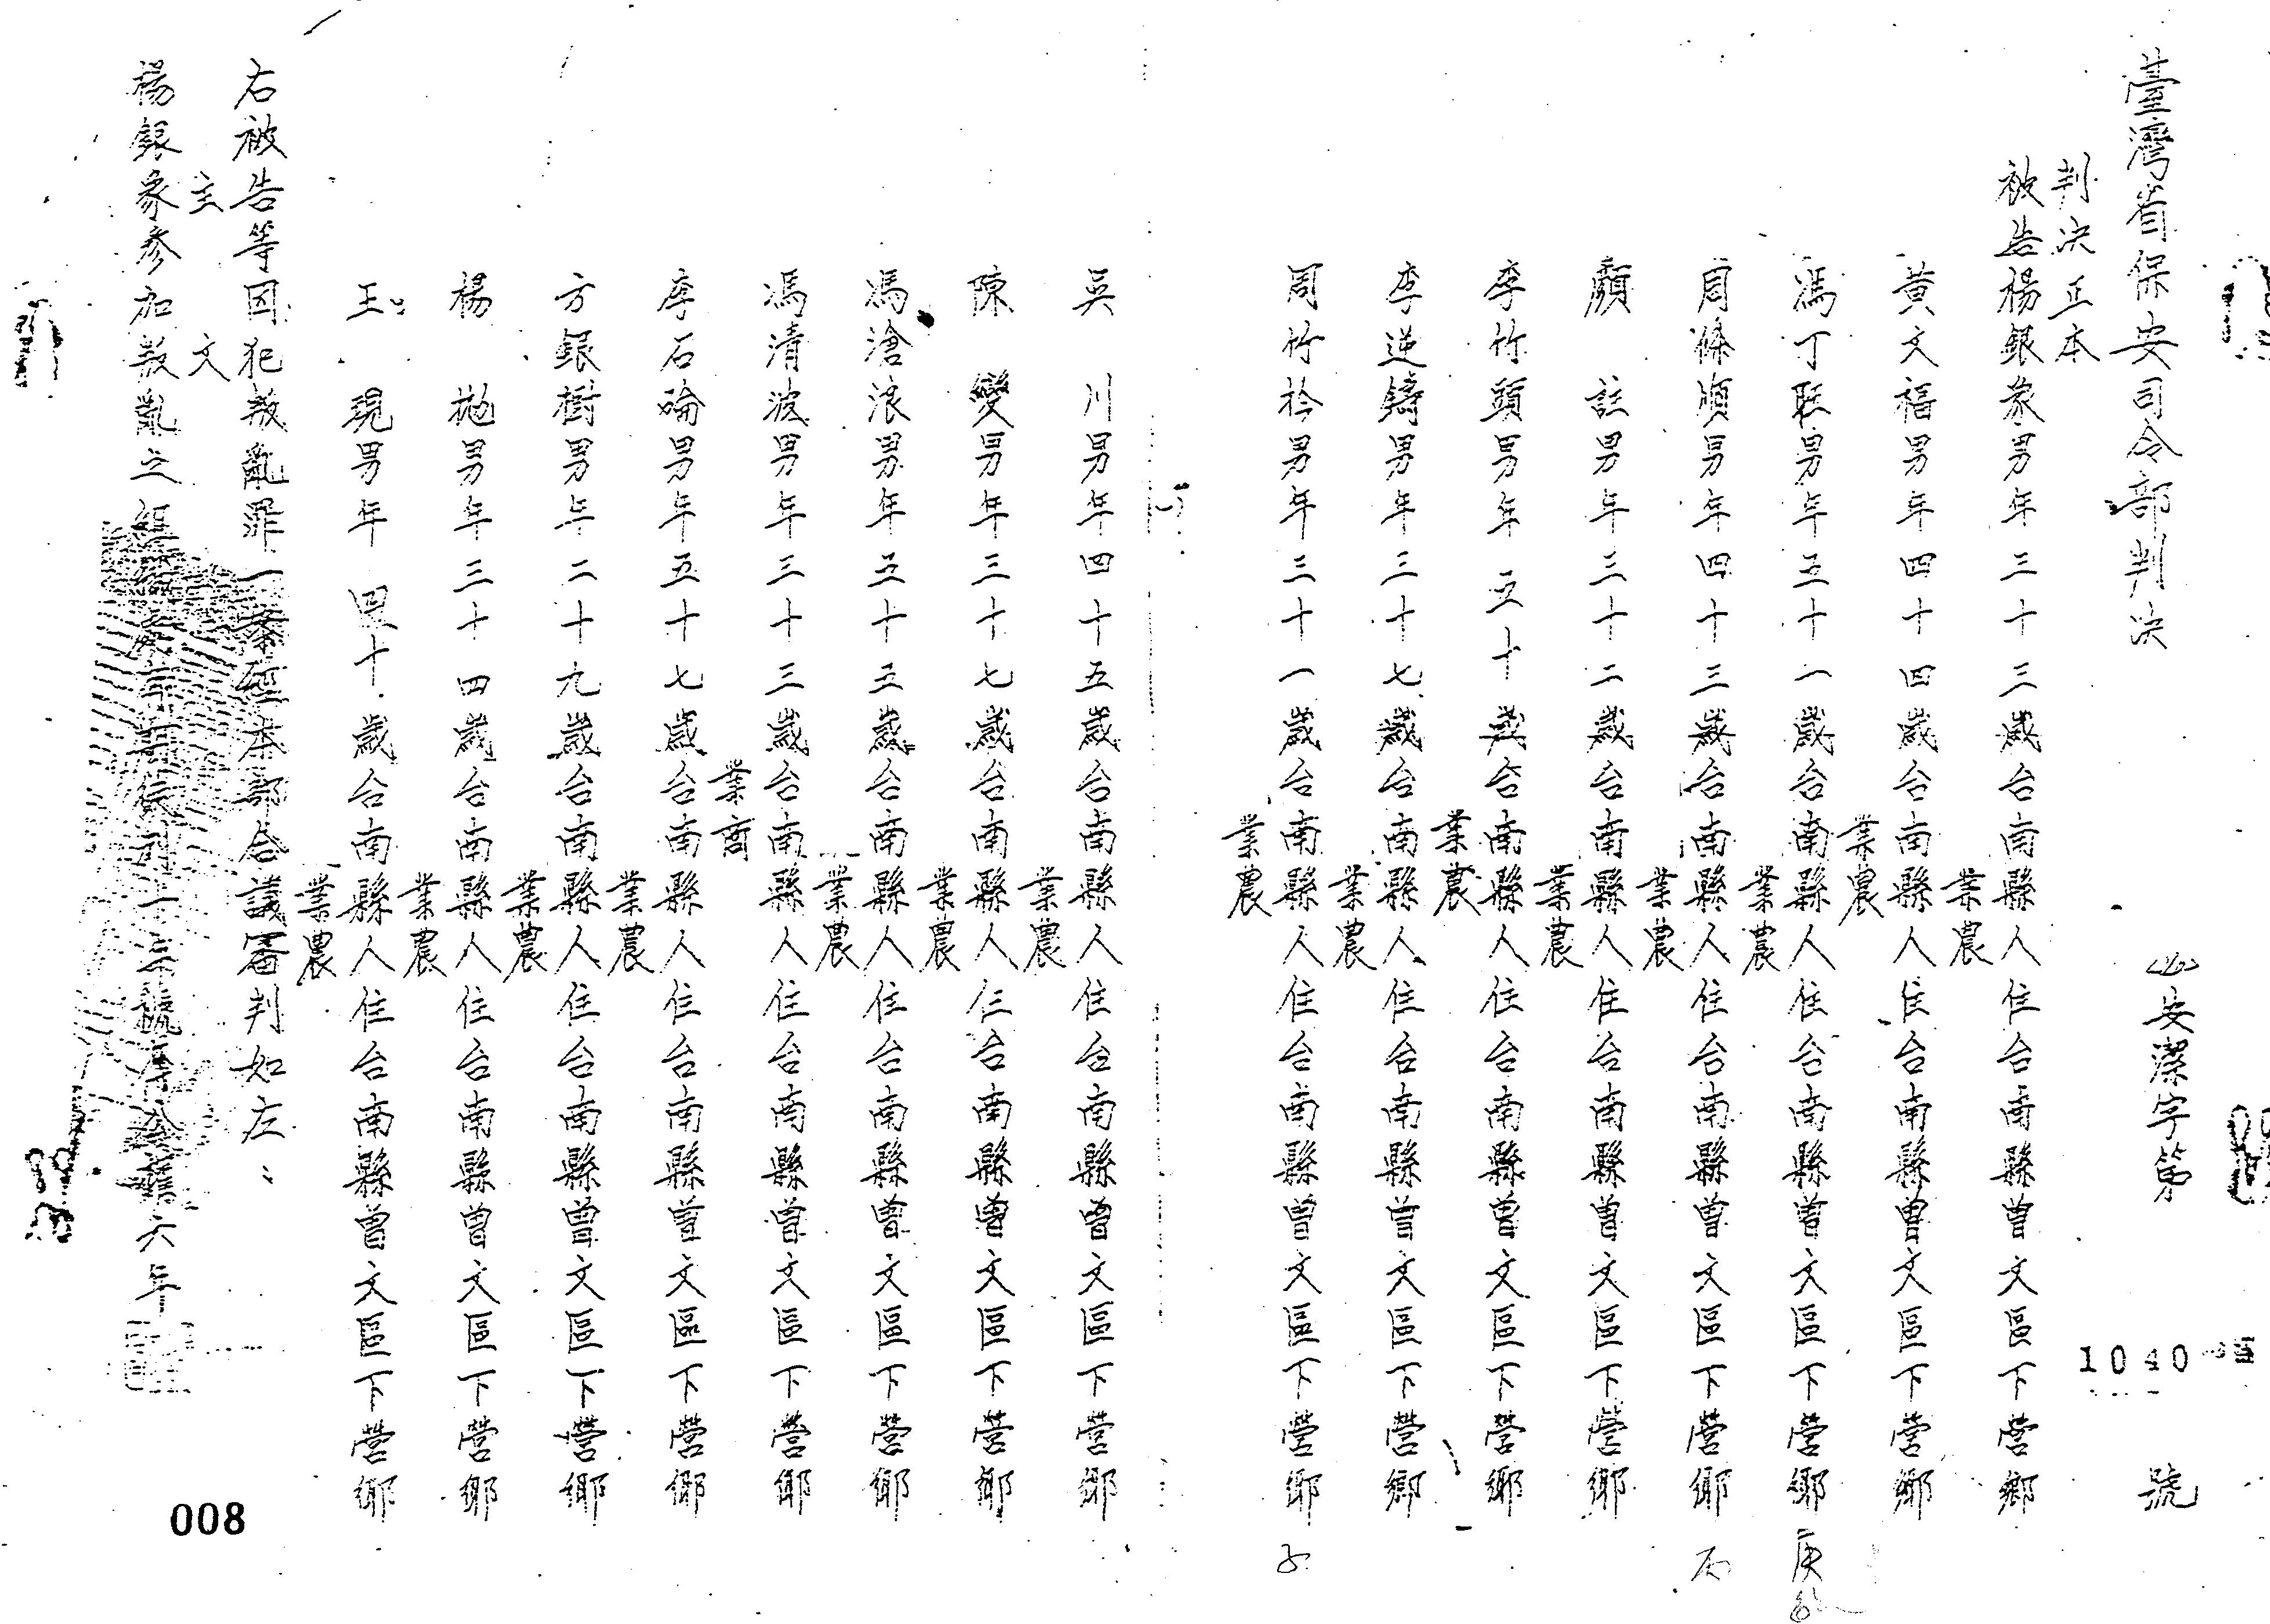 臺灣省保安司令部判決
安潔字第1040號
判決正本
被告楊銀象男年三十三歲台南縣人住台南縣曾文區下營鄉
業農
黃文福男年四十四歲台南縣人住台南縣曾文區下營鄉
業農
馮丁聒男年五十一歲台南縣人住台南縣曾文區下營鄉
業農
周條順男年四十三歲台南縣人住台南縣曾文區下營鄉
業農
顏 註男年三十二歲台南縣人住台南縣曾文區下營鄉
業農
李竹頭男年五十歲台南縣人住台南縣曾文區下營鄉
業農
李逆鑄男年三十七歲台南縣人住台南縣曾文區下營鄉
業農
周竹衿男年三十一歲台南縣人住台南縣曾文區下營鄉
業農
吳 川男年四十五歲台南縣人住台南縣曾文區下營鄉
業農
陳 變男年三十七歲台南縣人住台南縣曾文區下營鄉
業農
馮滄浪男年五十三歲台南縣人住台南縣曾文區下營鄉
業農
馮清波男年三十三歲台南縣人住台南縣曾文區下營鄉
業商
李石碖男年五十七歲台南縣人住台南縣曾文區下營鄉
業農
方銀樹男年二十九歲台南縣人住台南縣曾文區下營鄉
業農
楊 拋男年三十四歲台南縣人住台南縣曾文區下營鄉
業農
王 現男年四十歲台南縣人住台南縣曾文區下營鄉
業農
右被告等因犯叛亂罪一案經本部合議審判如左：
主 文
楊銀象參加叛亂之組織處有期徒刑十二年褫奪公權六年
008